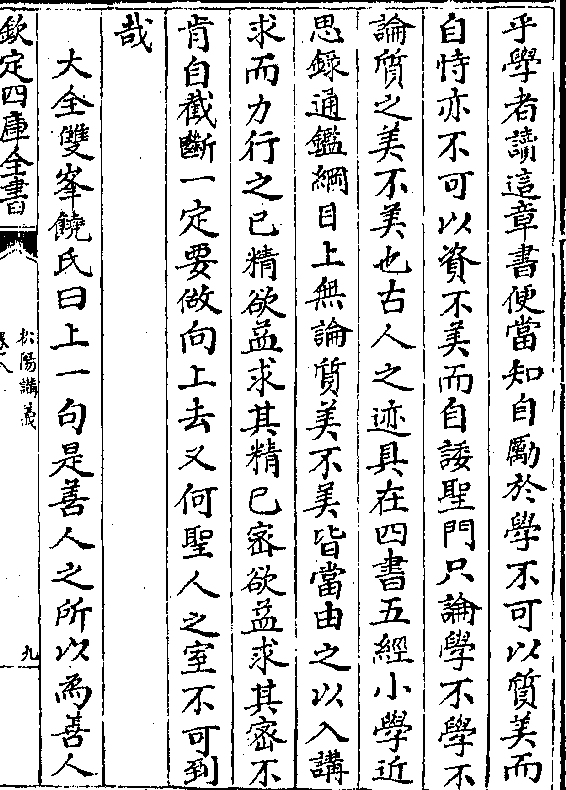 乎學者讀這章書便當知自勵於學不可以質美而
自恃亦不可以資不美而自諉聖門只論學不學不
論質之美不美也古人之迹具在四書五經小學近
思録通鑑綱目上無論質美不美皆當由之以入講
求而力行之已精欲益求其精已宻欲益求其宻不
肯自截斷一定要做向上去又何聖人之室不可到
哉
大全雙峯饒氏曰上一句是善人之所以為善人
欽定四庫全書
松陽講義
卷八
九